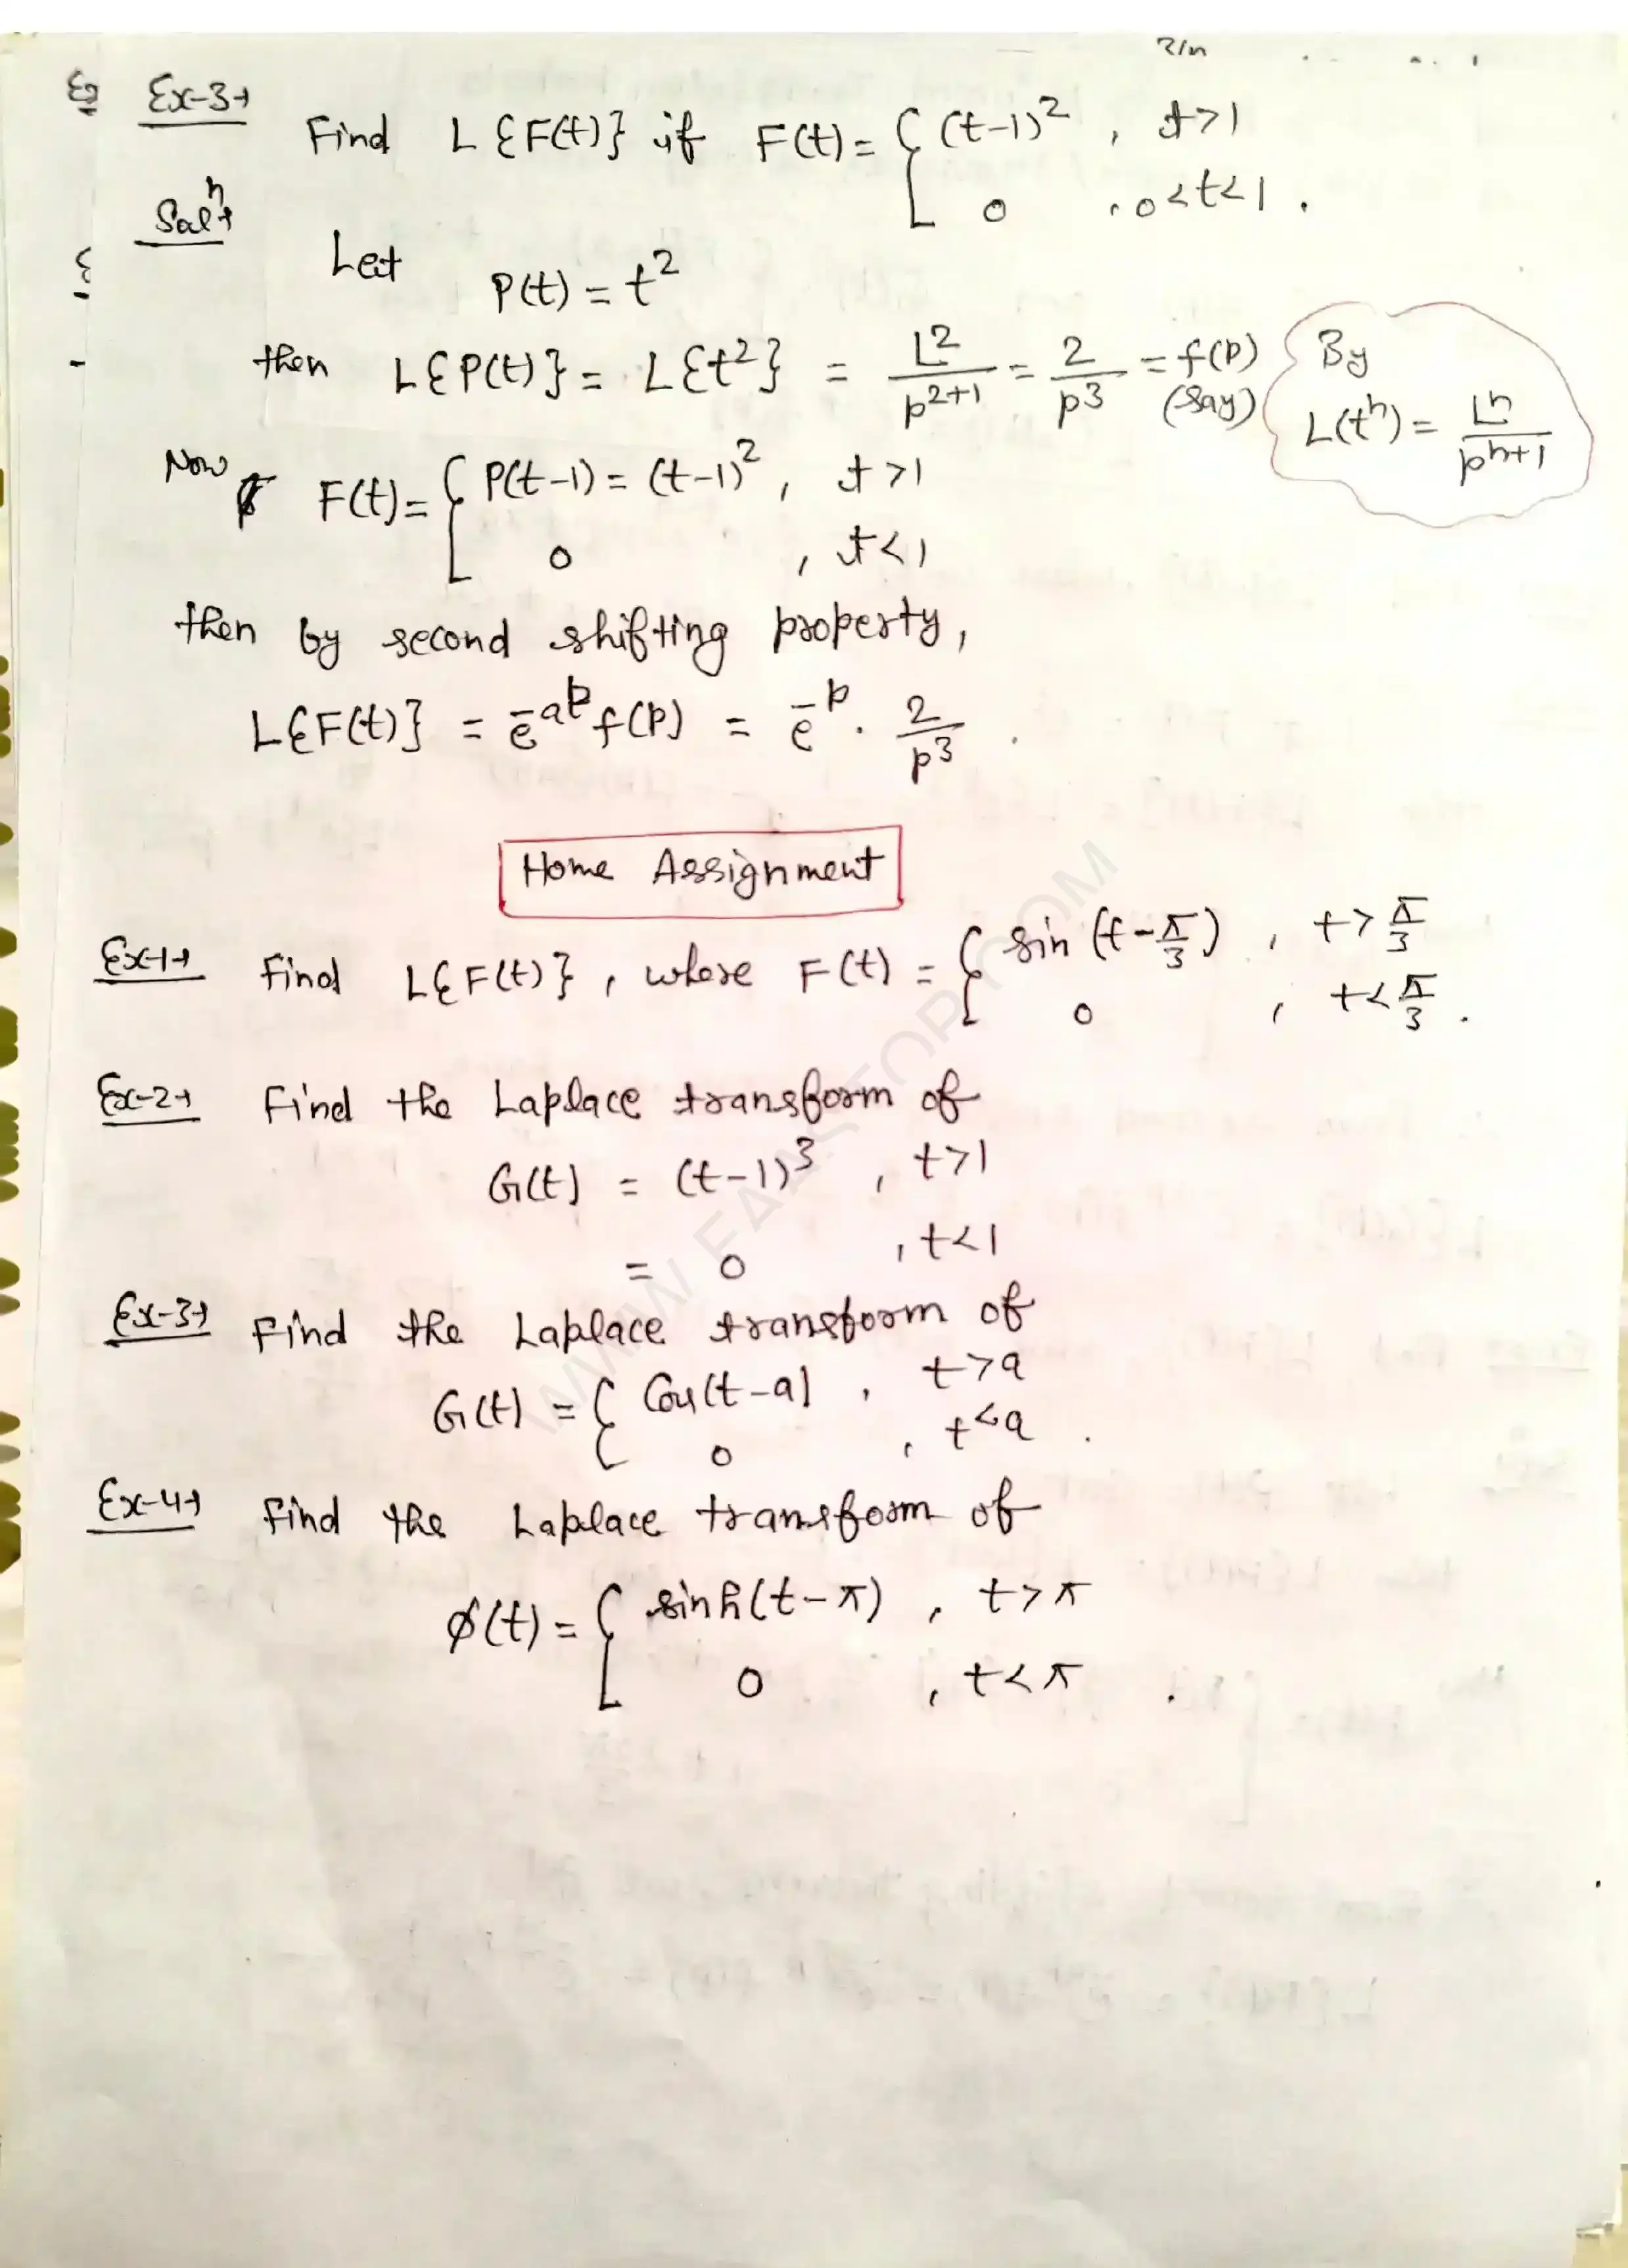 Ex-3→ Find L{F(t)} if F(t) = { (t-1)² , t>1
0 , 0<t<1 .
Solⁿ→ Let P(t) = t²
then L{P(t)} = L{t²} = L2/p^(2+1) = 2/p³ = f(p) (say)
By L(tⁿ) = Ln/p^(n+1)
Now F(t) = { P(t-1) = (t-1)² , t>1
0 , t<1
then by second shifting property,
L{F(t)} = e^(-ap) f(p) = e^(-p) . 2/p³ .
Home Assignment
Ex-1→ Find L{F(t)} , where F(t) = { sin (t-π/3) , t>π/3
0 , t<π/3 .
Ex-2→ Find the Laplace transform of
G(t) = (t-1)³ , t>1
= 0 , t<1
Ex-3→ Find the Laplace transform of
G(t) = { Cos(t-a) , t>a
0 , t<a .
Ex-4→ Find the Laplace transform of
ϕ(t) = { sinh(t-π) , t>π
0 , t<π .